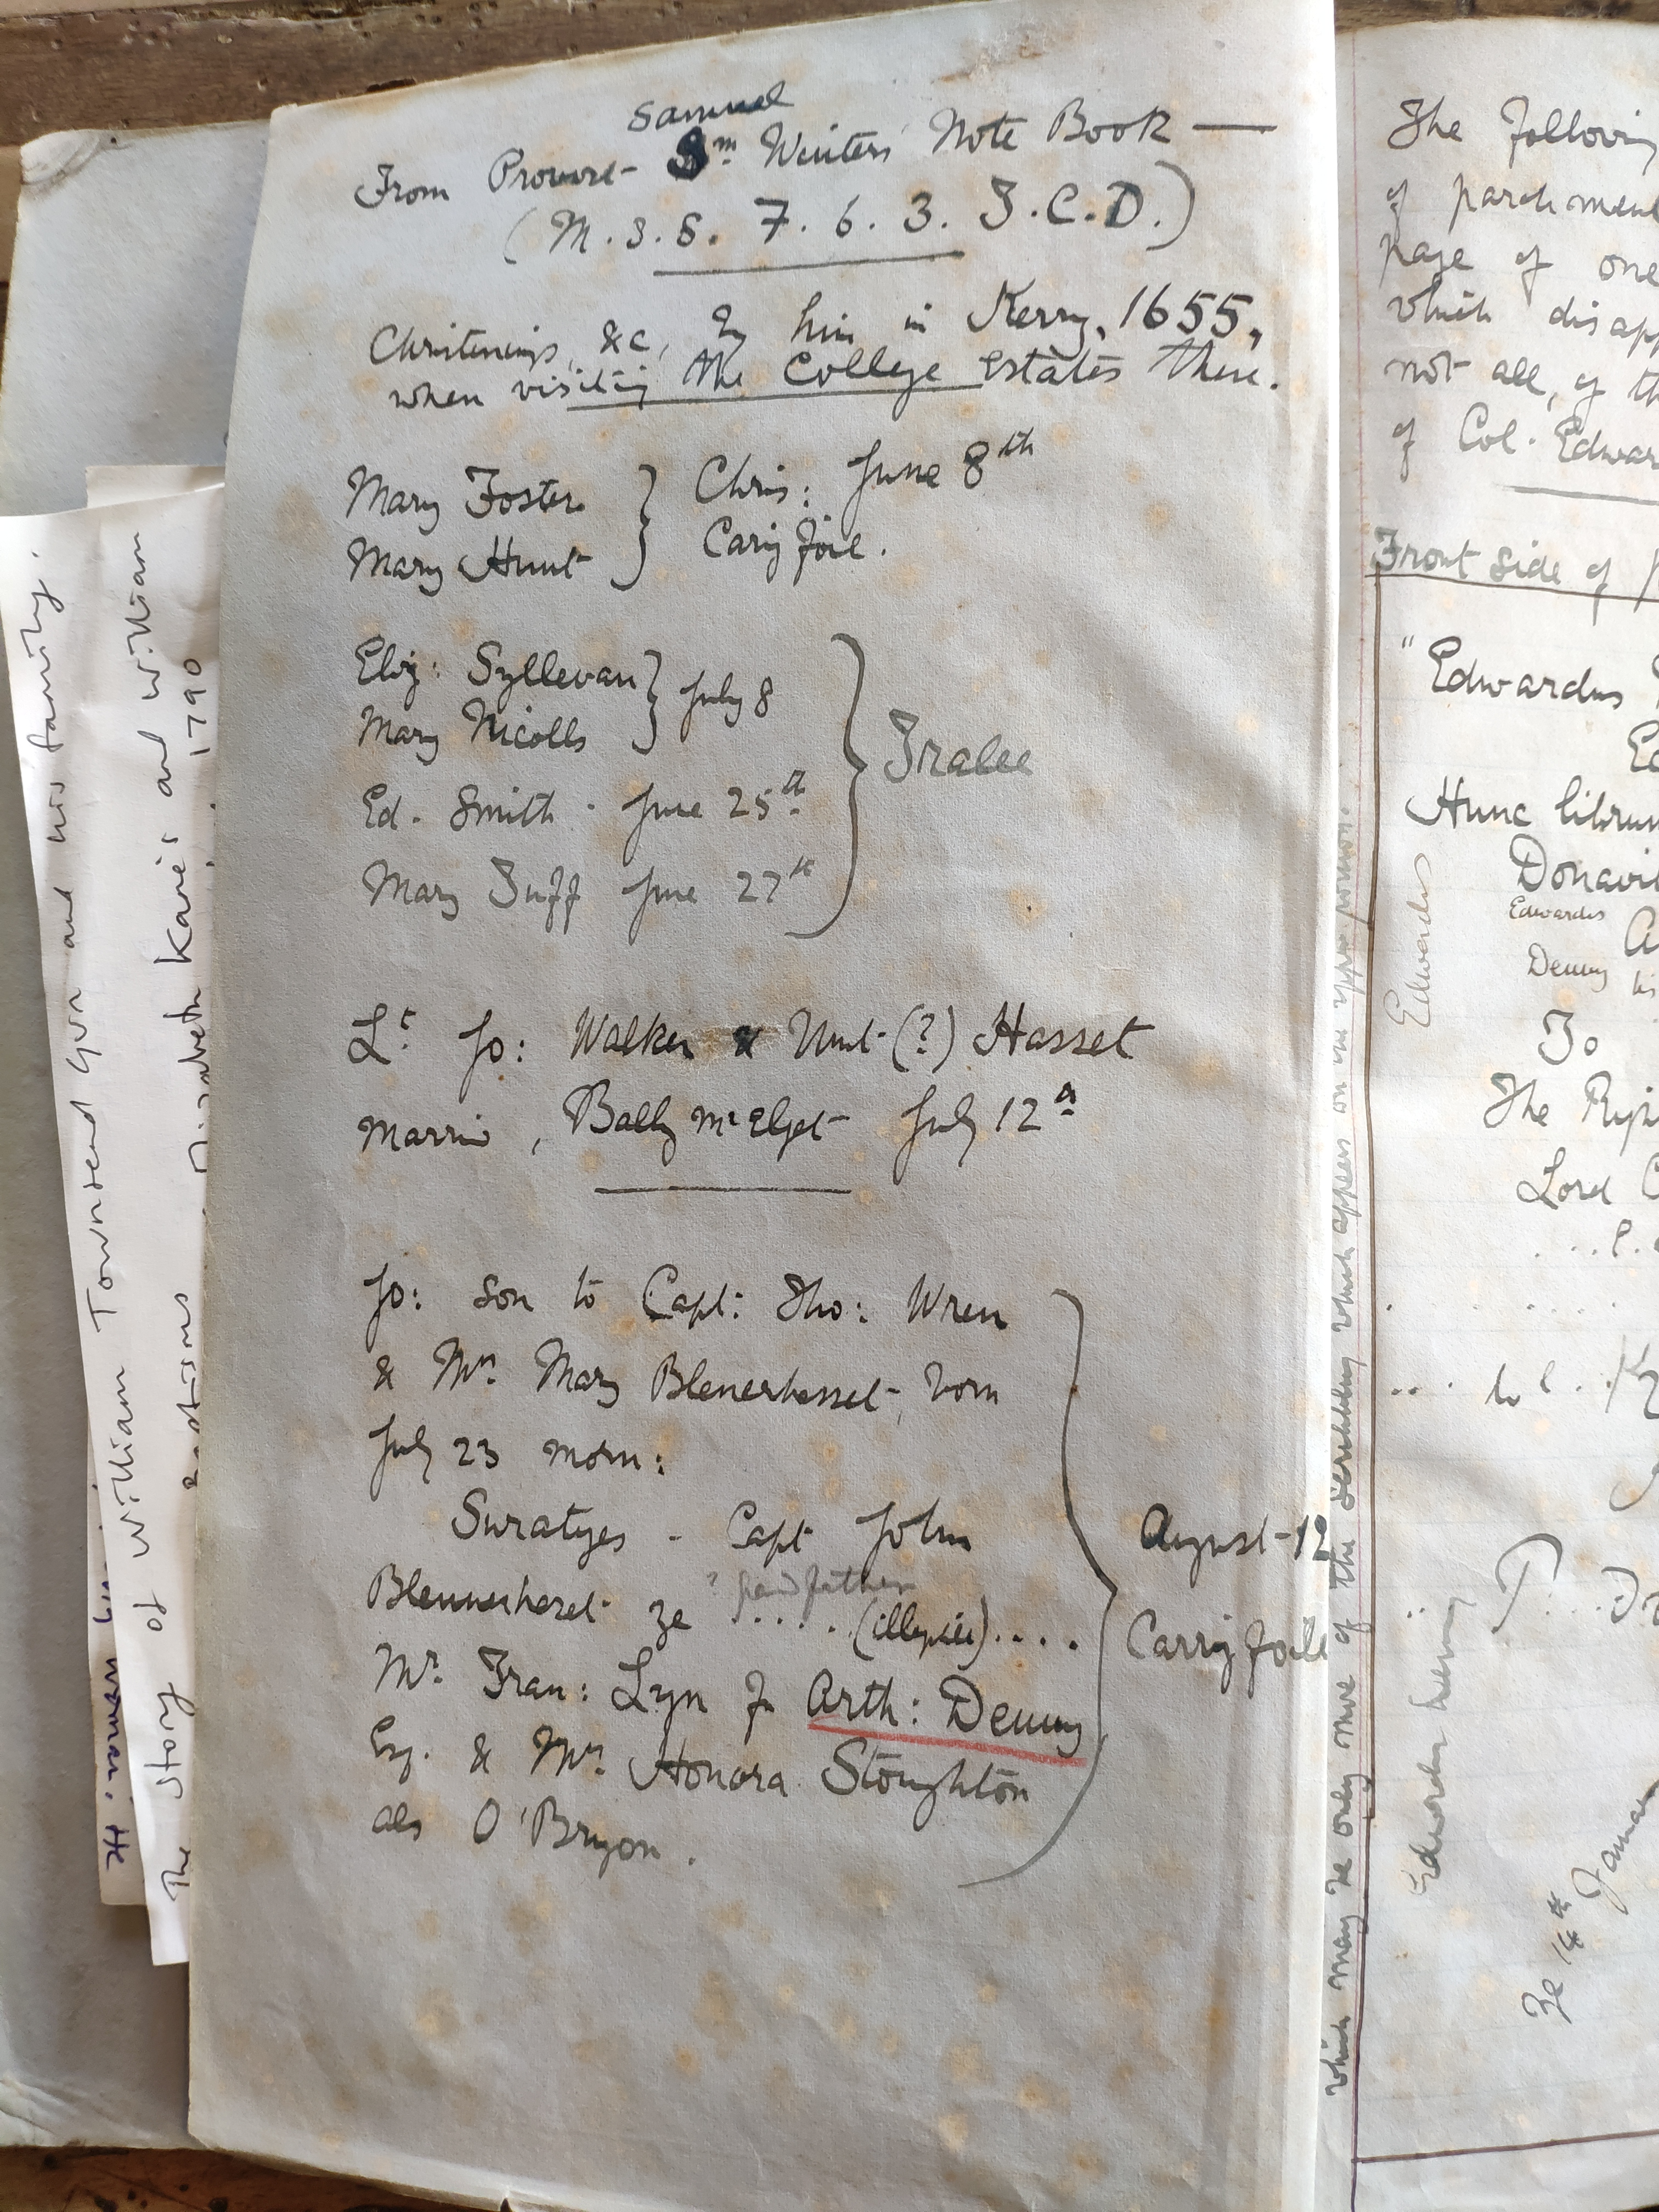 Samuel
From Provost Sm Winters Note Book —
(M.S.S. 7. 6. 3. T.C.D.)
Christenings, &c, by him in Kerry, 1655,
when visiting the College Estates there.
Mary Foster } Chris: June 8th
Mary Hunt } Carig foile.
Eliz: Syllevan } July 8
Mary Nicolls
Ed. Smith - June 25th
Mary Tuff June 27th
} Tralee
Lt Jo: Walker & (?) Hasset
Married, Bally McElget July 12th
Jo: Son to Capt: Tho: Wren
& Mrs Mary Blenerhasset, born
July 23 morn:
Suratyes - Capt John
Blennerhaset ye ? grandfather
....(illegible)....
Mr. Fran: Lyn for Arth: Denny
Esq. & Mrs Honora Stoughton
als O'Bryon.
} August 12
Carrigfoile
The following
of parchment
page of one
which disapp
not all, of th
of Col. Edwar
Front side of
"Edwardus
Ed
Hunc librum
Donavit
Edwardus
Denny his
To
The Righ
Lord C
Edwardus
Edwardus Denny
Ye 14th Januar
which may be only more of the scribbling which appears on the upper portion.
The story of William Townsend Gun and his family.
Baptisms Elizabeth Kane's and William
1790